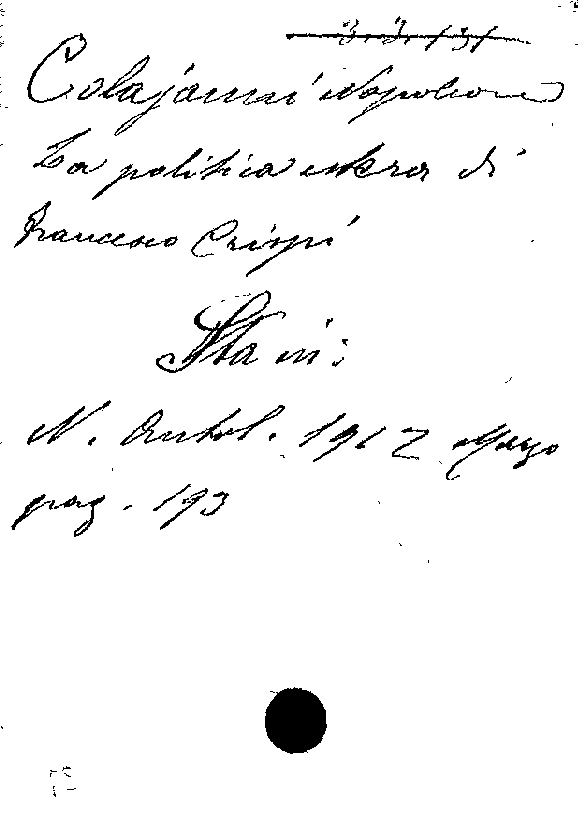 3.3.131
Colajanni Napoleone
La politica estera di
Francesco Crispi
Sta in:
N. Antol. 1912 Marzo
pag. 193